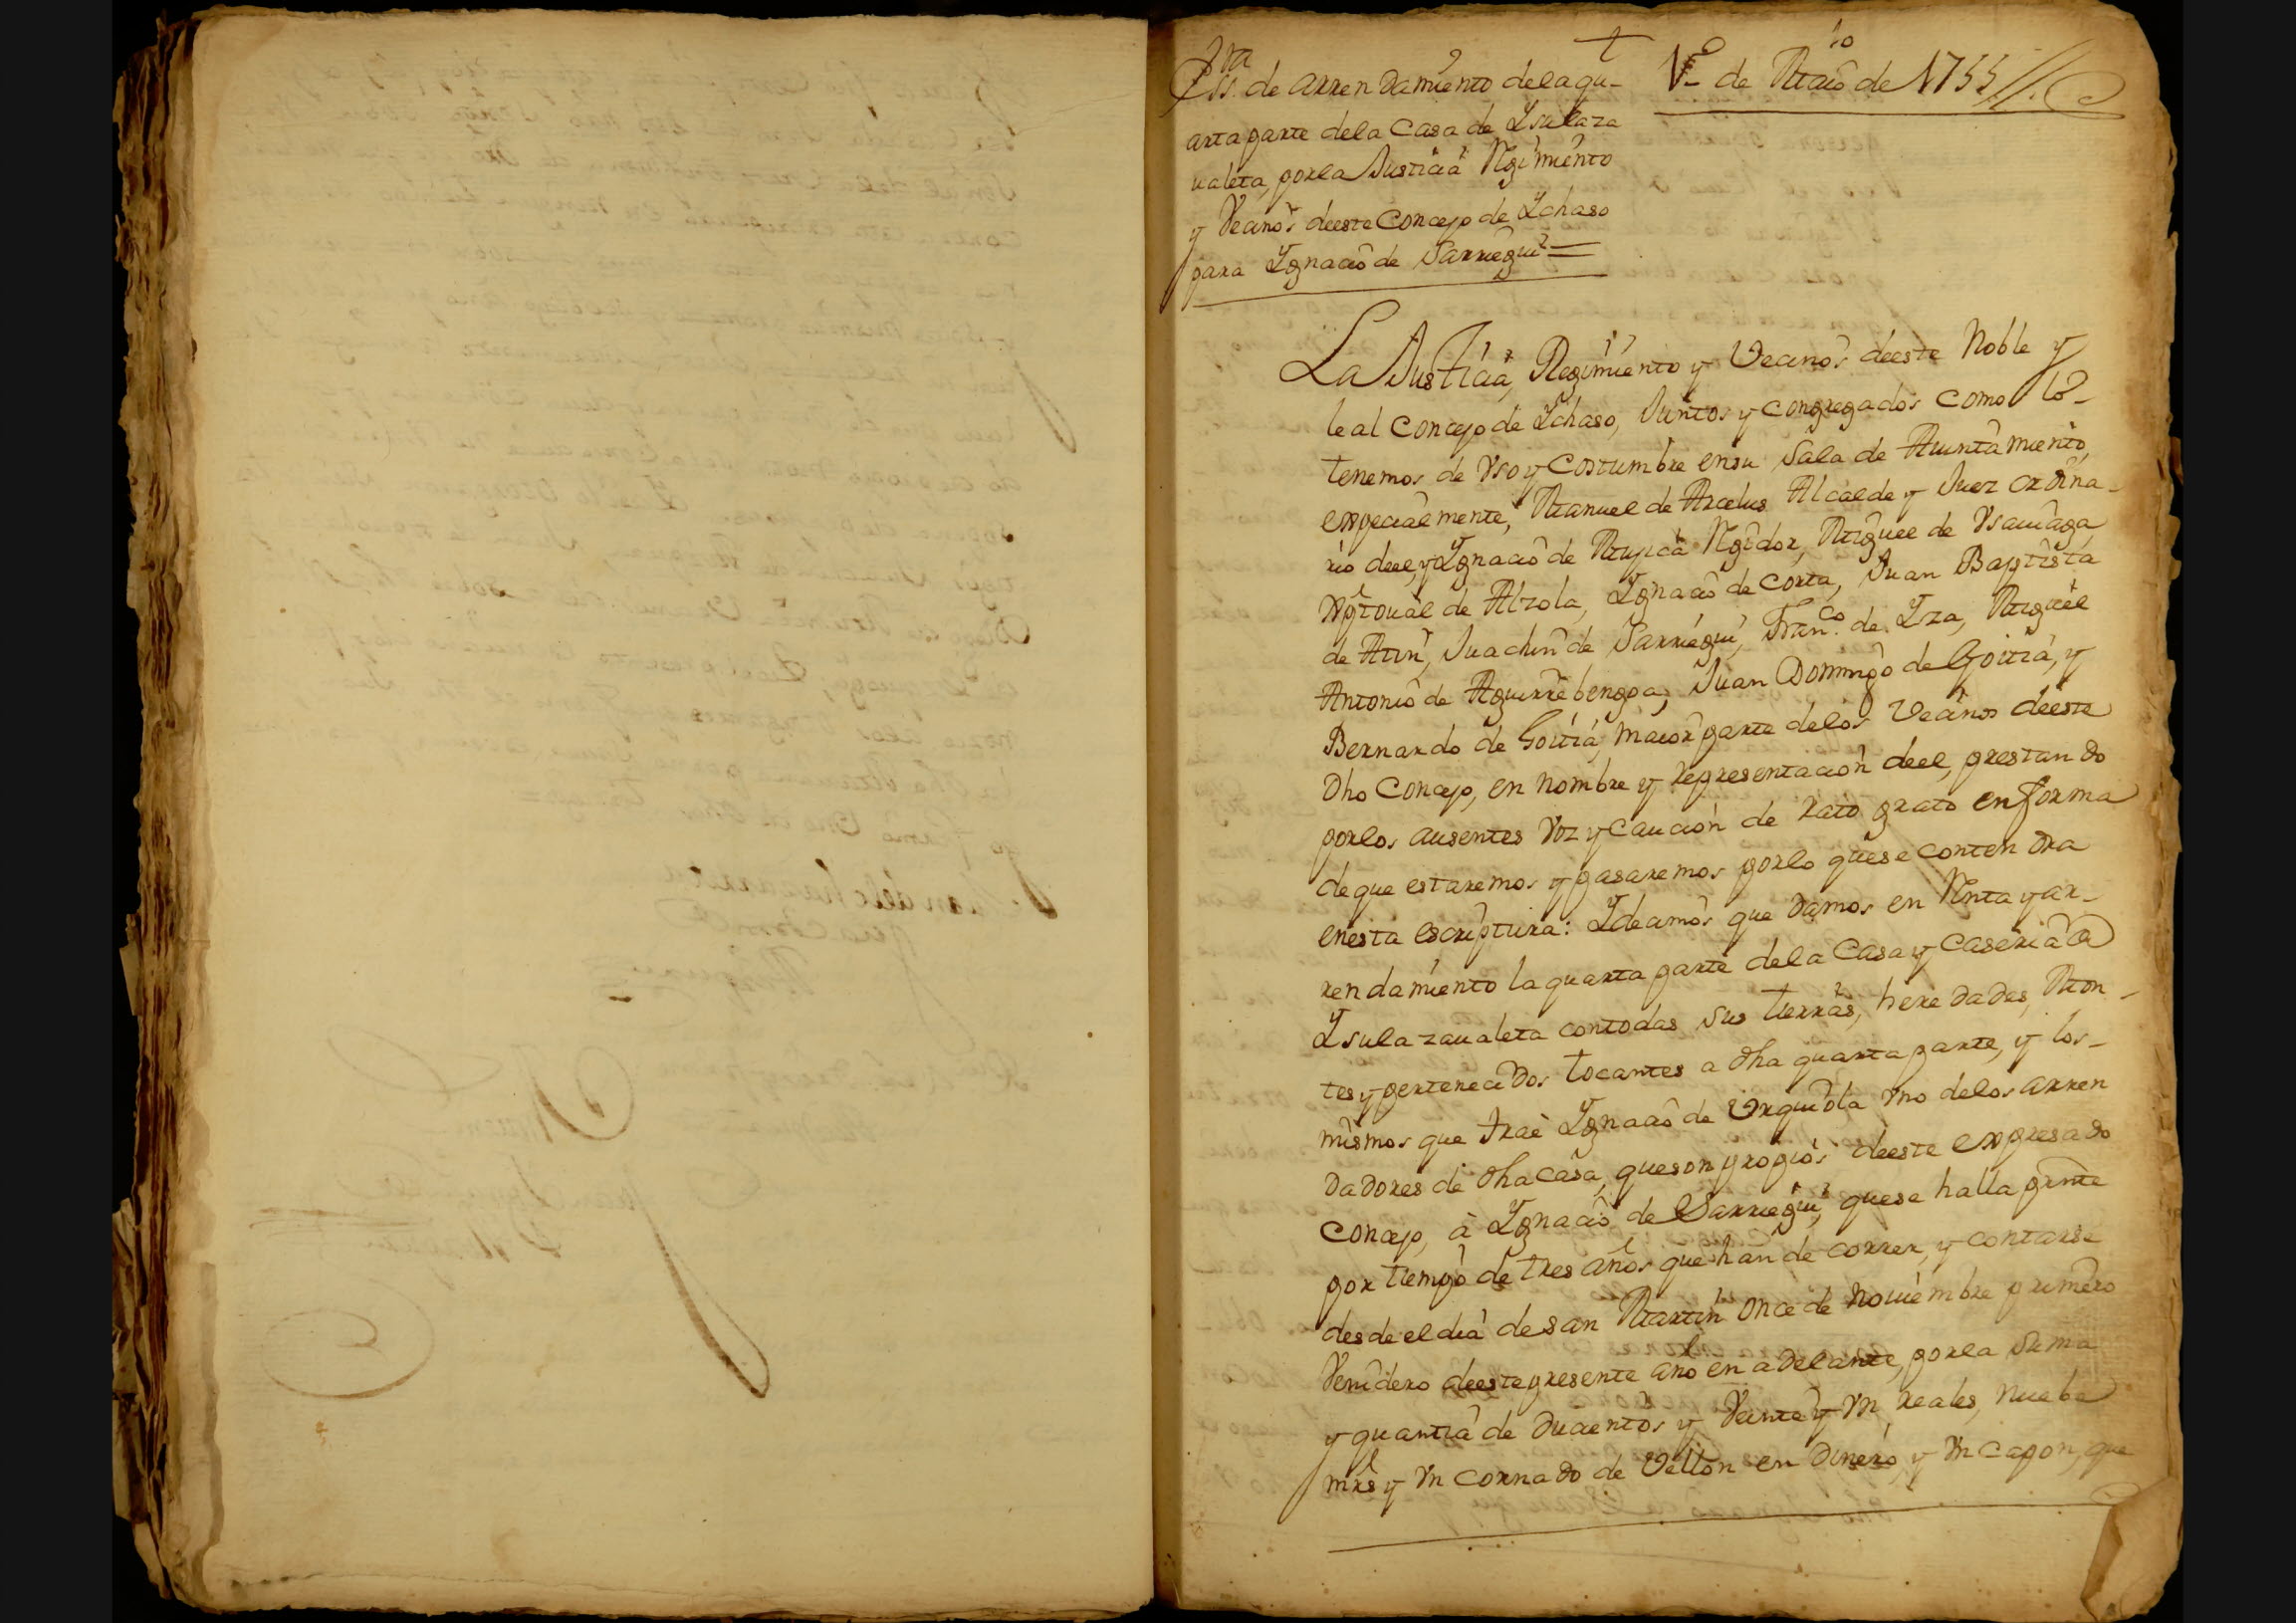 †
Essra de arrendamiento dela qu-
arta parte dela Casa de Ysulaza
ualeta, porla Justicia Rgimiento
y Vecinos deeste Concejo de Ychaso
para Ygnacio de Sarriegui =
de Maio de 1755
La Justicia, Regimiento y Vecinos deeste Noble y
leal Concejo de Ychaso, Juntos y congregados como lo-
tenemos de Vso y Costumbre ensu Sala de Aiuntamiento,
expecialmente, Manuel de Arcelus Alcalde y Juez ordina-
rio deel, y Ygnacio de Mujica Rgidor, Miguel de Vsauiaga
Xptoual de Alzola, Ygnacio de Corta, Juan Baptista
de Atin, Juachin de Sarriegui, Franco. de Yza, Miguel
Antonio de Aguirrebengoa, Juan Domingo de Goitia, y
Bernardo de Goitia, maior parte delos Vecinos deeste
Dho Concejo, en nombre y representacion deel, prestando
porlos ausentes Voz y Caucion de rato grato enforma
deque estaremos y pasaremos porlo quese contendra
enesta escriptura: Ydecimos que damos en Rnta y ar-
rendamiento la quarta parte dela Casa y Caseria de
Ysulazaualeta contodas sus tierras, heredades, Mon-
tes y pertenecidos tocantes a dha quarta parte, y los-
mismos que trae Ygnacio de Vrquiola Vno delos arren
dadores de dha casa, queson propios deeste expresado
Concejo, à Ygnacio de Sarriegui, quese halla prnte
por tiempo de tres años que han de correr, y contarse
desde el dia de san Martin once de nouiembre primero
Venidero deeste presente año en adelante, porla suma
y quantia de Ducientos y Veinte y Vn reales, nuebe
mrs y Vn cornado de Vellon en Dinero, y Vn capon, que